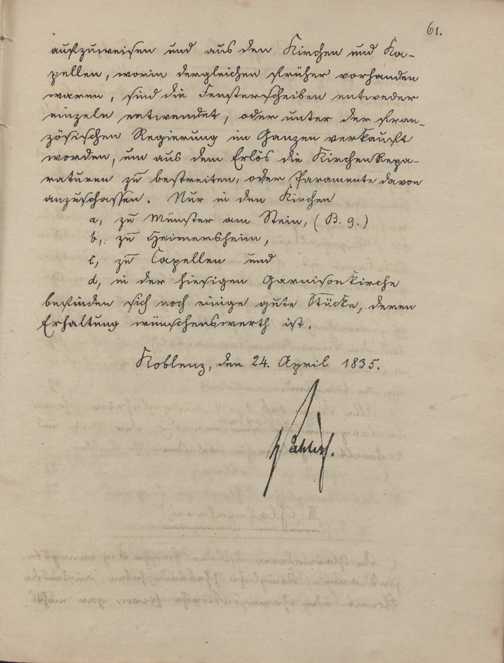 61.
aufzuweisen und aus den Kirchen und Ka-
pellen, worin dergleichen früher vorhanden
waren, sind die Fensterscheiben entweder
einzeln entwendet, oder unter der fran-
zösischen Regierung im Ganzen verkauft
worden, um aus dem Erlös die Kirchen Repa-
raturen zu bestreiten, oder Paramente davon
anzuschaffen. Nur in den Kirchen
a, zu Münster am Stein, (B. 9.)
b, zu Heimersheim,
c, zu Capellen und
d, in der hiesigen Garnisonkirche
befinden sich noch einige gute Stücke, deren
Erhaltung wünschenswerth ist.
Koblenz, den 24. April 1835.